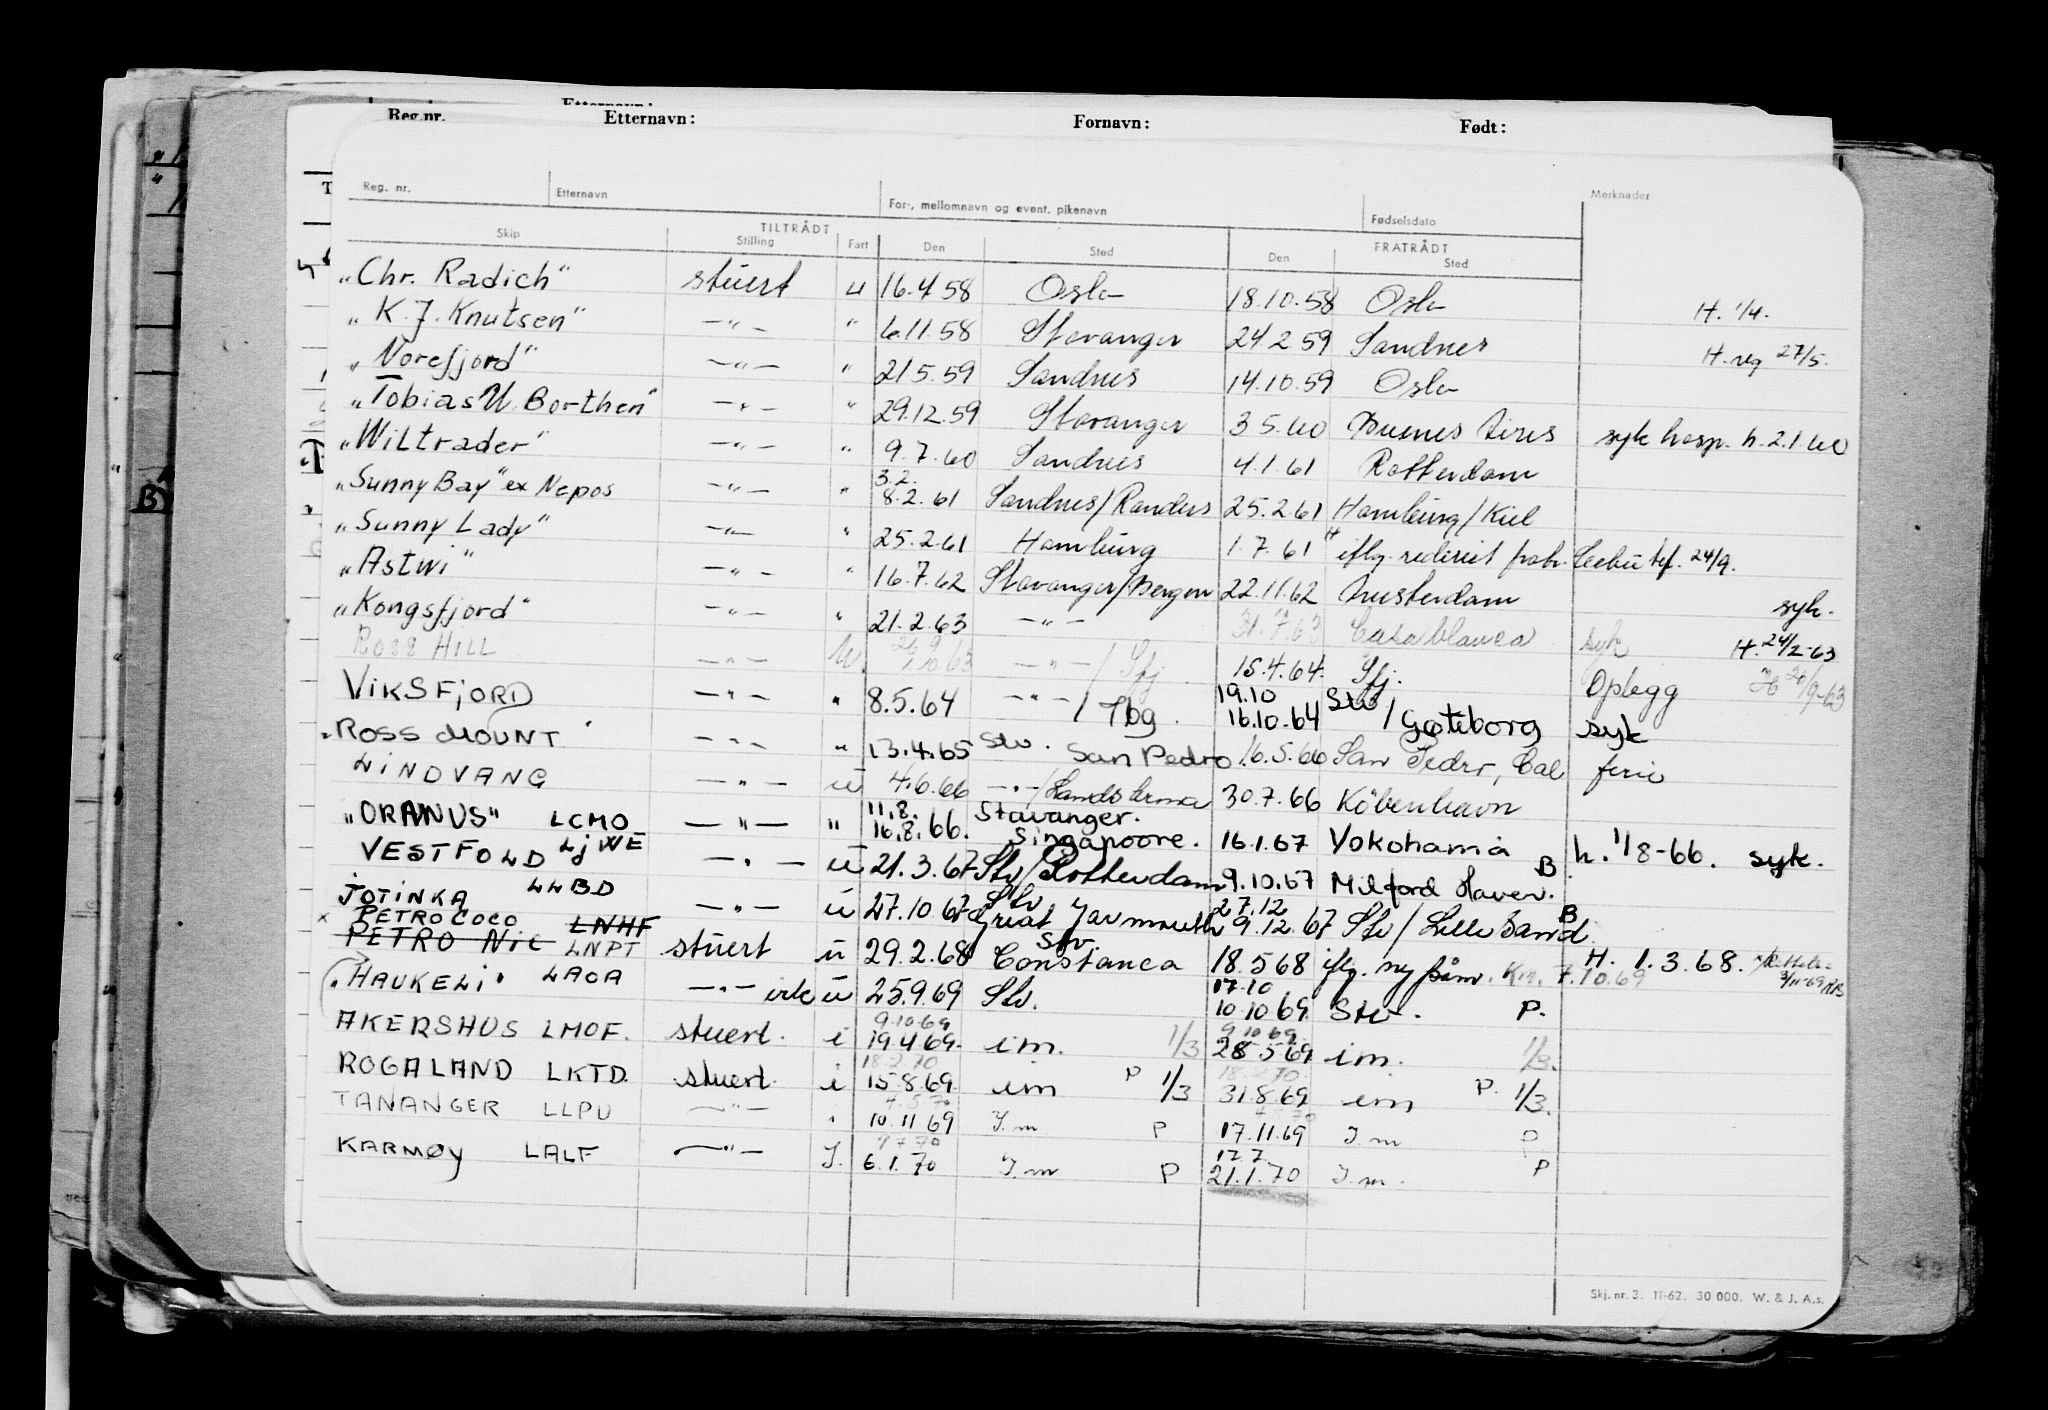 Etternavn:
Reg.nr. Etternavn: Fornavn: Født:
Reg. nr. Etternavn For-, mellomnavn og event. pikenavn Fødselsdato Merknader
TILTRÅDT FRATRÅDT
Skip Stilling Fart Den Sted Den Sted
"Chr. Radich" stuert u 16.4 58 Oslo 18.10.58 Oslo H. 1/4.
"K. J. Knutsen" —"— " 6.11.58 Stavanger 24.2 59 Sandnes H. reg 27/5.
"Norefjord" —"— " 21 5.59 Sandnes 14.10.59 Oslo
"Tobias U. Borthen" —"— " 29.12.59 Stavanger 3 5.60 Buenos Aires syk hosp. h. 2.1.60
"Wiltrader" —"— " 9.7.60 Sandnes 4.1.61 Rotterdam
"Sunny Bay" ex Nepos —"— " 3.2. 8.2.61 Sandnes/Randers 25.2 61 Hamburg/Kiel
"Sunny Lady" —"— " 25.2.61 Hamburg 1.7.61 iflg. rederiet tlf. 24/9.
"Astwi" —"— " 16.7.62 Stavanger/Bergen 22.11.62 Amsterdam syk.
"Kongsfjord" —"— " 21.2.63 —"— 31.7.63 Casablanca syk H. 24/2-63
ROSS HILL —"— —"— / Sfj 15.4.64. Sfj. Oplegg
VIKSFJORD —"— " 8.5.64 —"— / Tbg. 19.10 16.10.64 Stv / Gøteborg syk
"ROSS MOUNT" —"— " 13.4.65 Stv. San Pedro 16.5.66 San Pedro, Cal ferie
LINDVANG —"— u 4.6.66 —"— / Landskrona 30.7.66 København
"ORANUS" LCMO —"— " 11.8. 16.8.66. Stavanger. Singapoore. 16.1.67 Yokohama h. 1/8-66. syk.
VESTFOLD LJWE —"— u 21.3.67 Stv/Rotterdam 9.10.67 Milford Haven. B
JOTINKA LLBD —"— u 27.10 67 Stv Great Yarmouth 27.12 9.12.67 Stv / Lillesand B
x PETROCOCO LNHF
PETRO NIC LNPT stuert u 29.2.68 Stv. Constanca 18.5 68 iflg. ny påm. 7.10.69 H. 1.3.68.
"HAUKELI" LAOA —"— u 25.9.69 Stv. 17.10 10.10 69. Stv. P.
AKERSHUS LMOF. stuert. i 9.10 69 19.4 69. im. 1/3 9 10 69. 28 5 69 im. 1/3.
ROGALAND LKTD. stuert. i 18.2.70 15.8.69. im P 1/3 31.8.69 im P. 1/3.
TANANGER LLPU —"— " 10.11 69 I.m P 17.11.69 I.m P
KARMØY LALF —"— I. 6.1.70 I.m P 17.7. 21.1.70 I.m. P
Skj. nr. 3. 11-62. 30 000. W. & J. A.s.